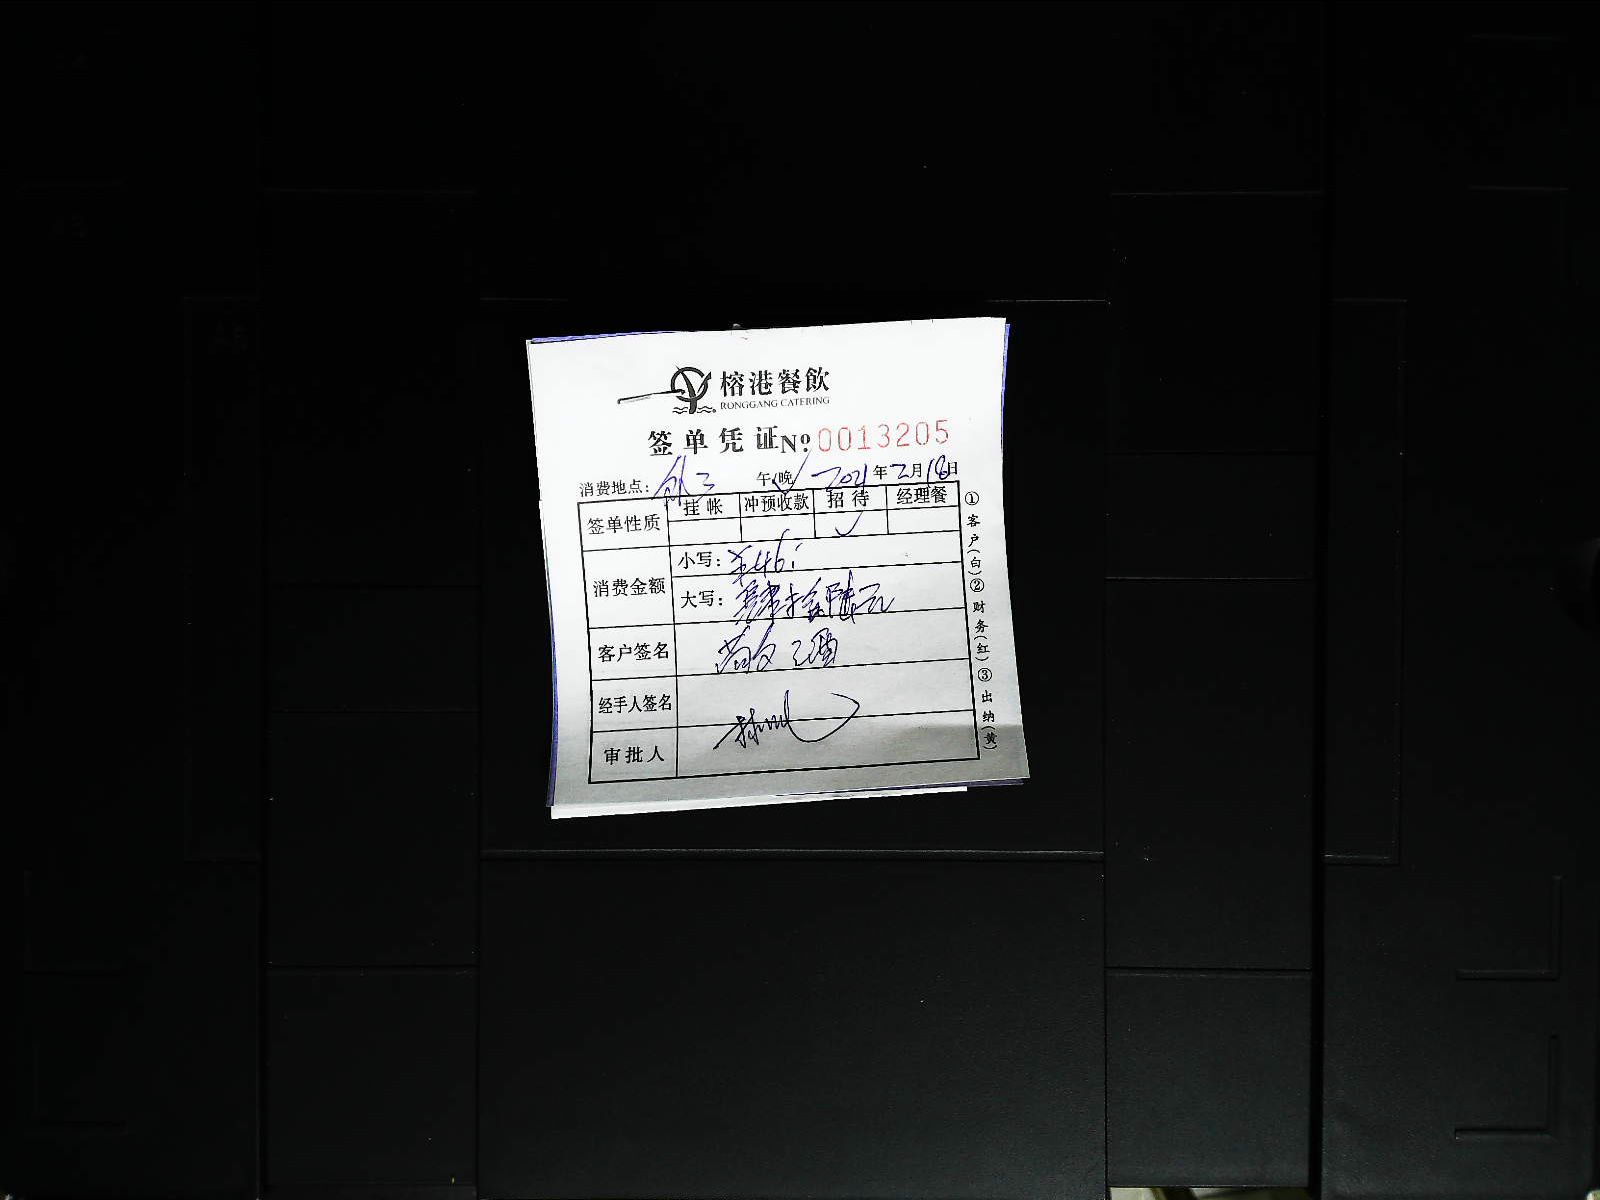 榕港餐飲
RONGGANG CATERING
签单凭证 №0013205
消费地点： 午/晚✓ 2021年2月18日
签单性质 挂帐 冲预收款 招待 经理餐
✓
消费金额 小写：¥46
大写：肆拾陆元
客户签名
经手人签名
审批人
①客户(白)②财务(红)③出纳(黄)